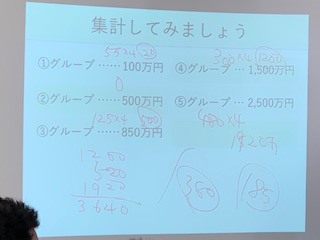 集計してみましょう
55×4 20
①グループ ……100万円
0
②グループ …… 500万円
125×4 500
③グループ …… 850万円
300×4 1200
④グループ …… 1,500万円
⑤グループ …… 2,500万円
480×4
1920万
1200
520
1920
3640
360
185